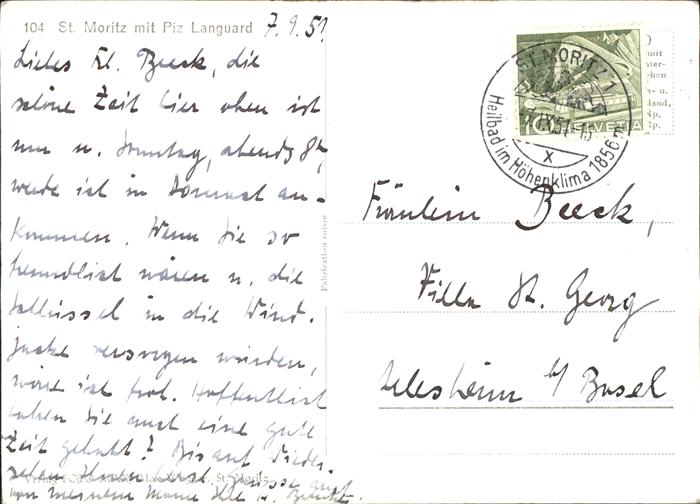 104 St. Moritz mit Piz Languard
7.9.51
Liebes Frl. Beeck, die
schöne Zeit hier oben ist
um u. Sonntag, abends 8h,
werde ich in Dornach an-
kommen. Wenn Sie so
freundlich wären u. die
Schlüssel in die Wind-
jacke versorgen würden,
wäre ich froh. Hoffentlich
haben Sie auch eine gute
Zeit gehabt? Bis auf Wieder-
sehen Ihnen herzl. Grüsse auch
von meinem Manne
St. Moritz
Fabrication suisse
ST. MORITZ 1
IX.51.-15
X
Heilbad im Höhenklima 1856 m
10 HELVETIA
Fräulein Beeck,
Villa St. Georg
Arlesheim b/ Basel